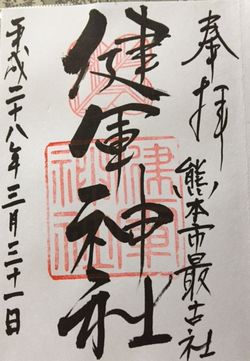 奉拝
熊本市最古社
健軍神社
平成二十八年三月三十一日
健軍神社